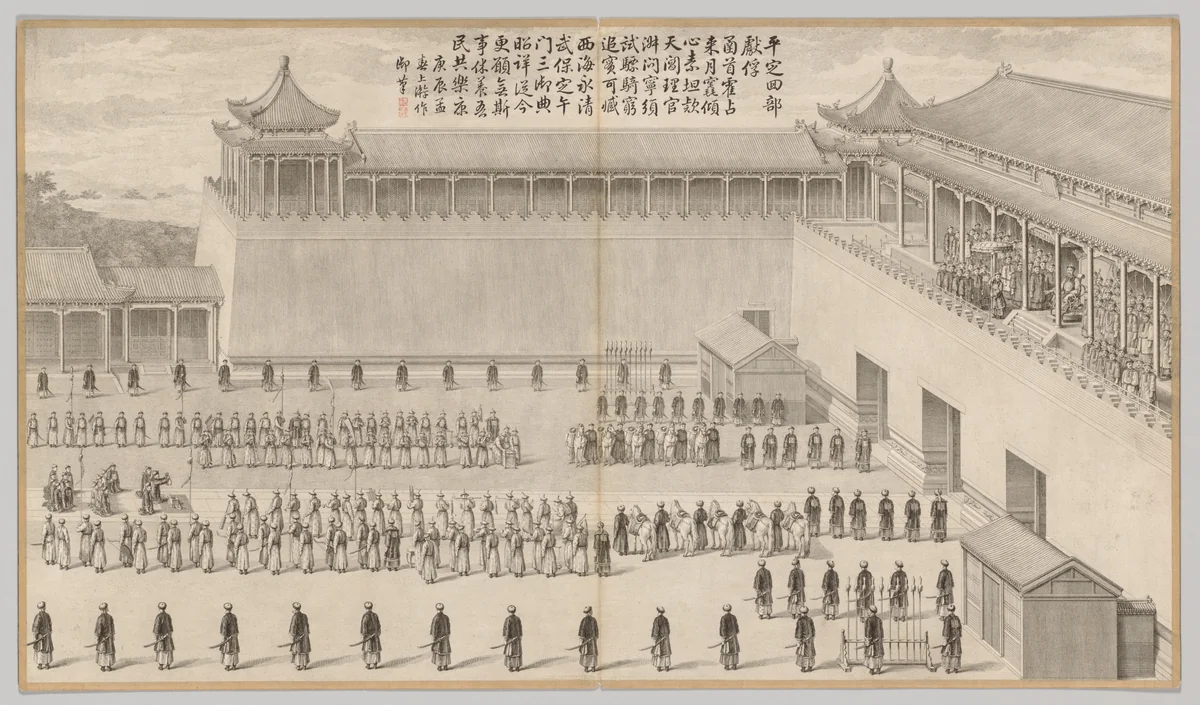 平定回部
獻俘
函首霍占
来月竁傾
心素坦款
天閶理官
淑問寧須
試驃騎窮
追實可臧
西海永清
武保定午
门三御典
昭詳從今
更願無斯
事休養吾
民共樂康
庚辰孟
春上澣作
御筆